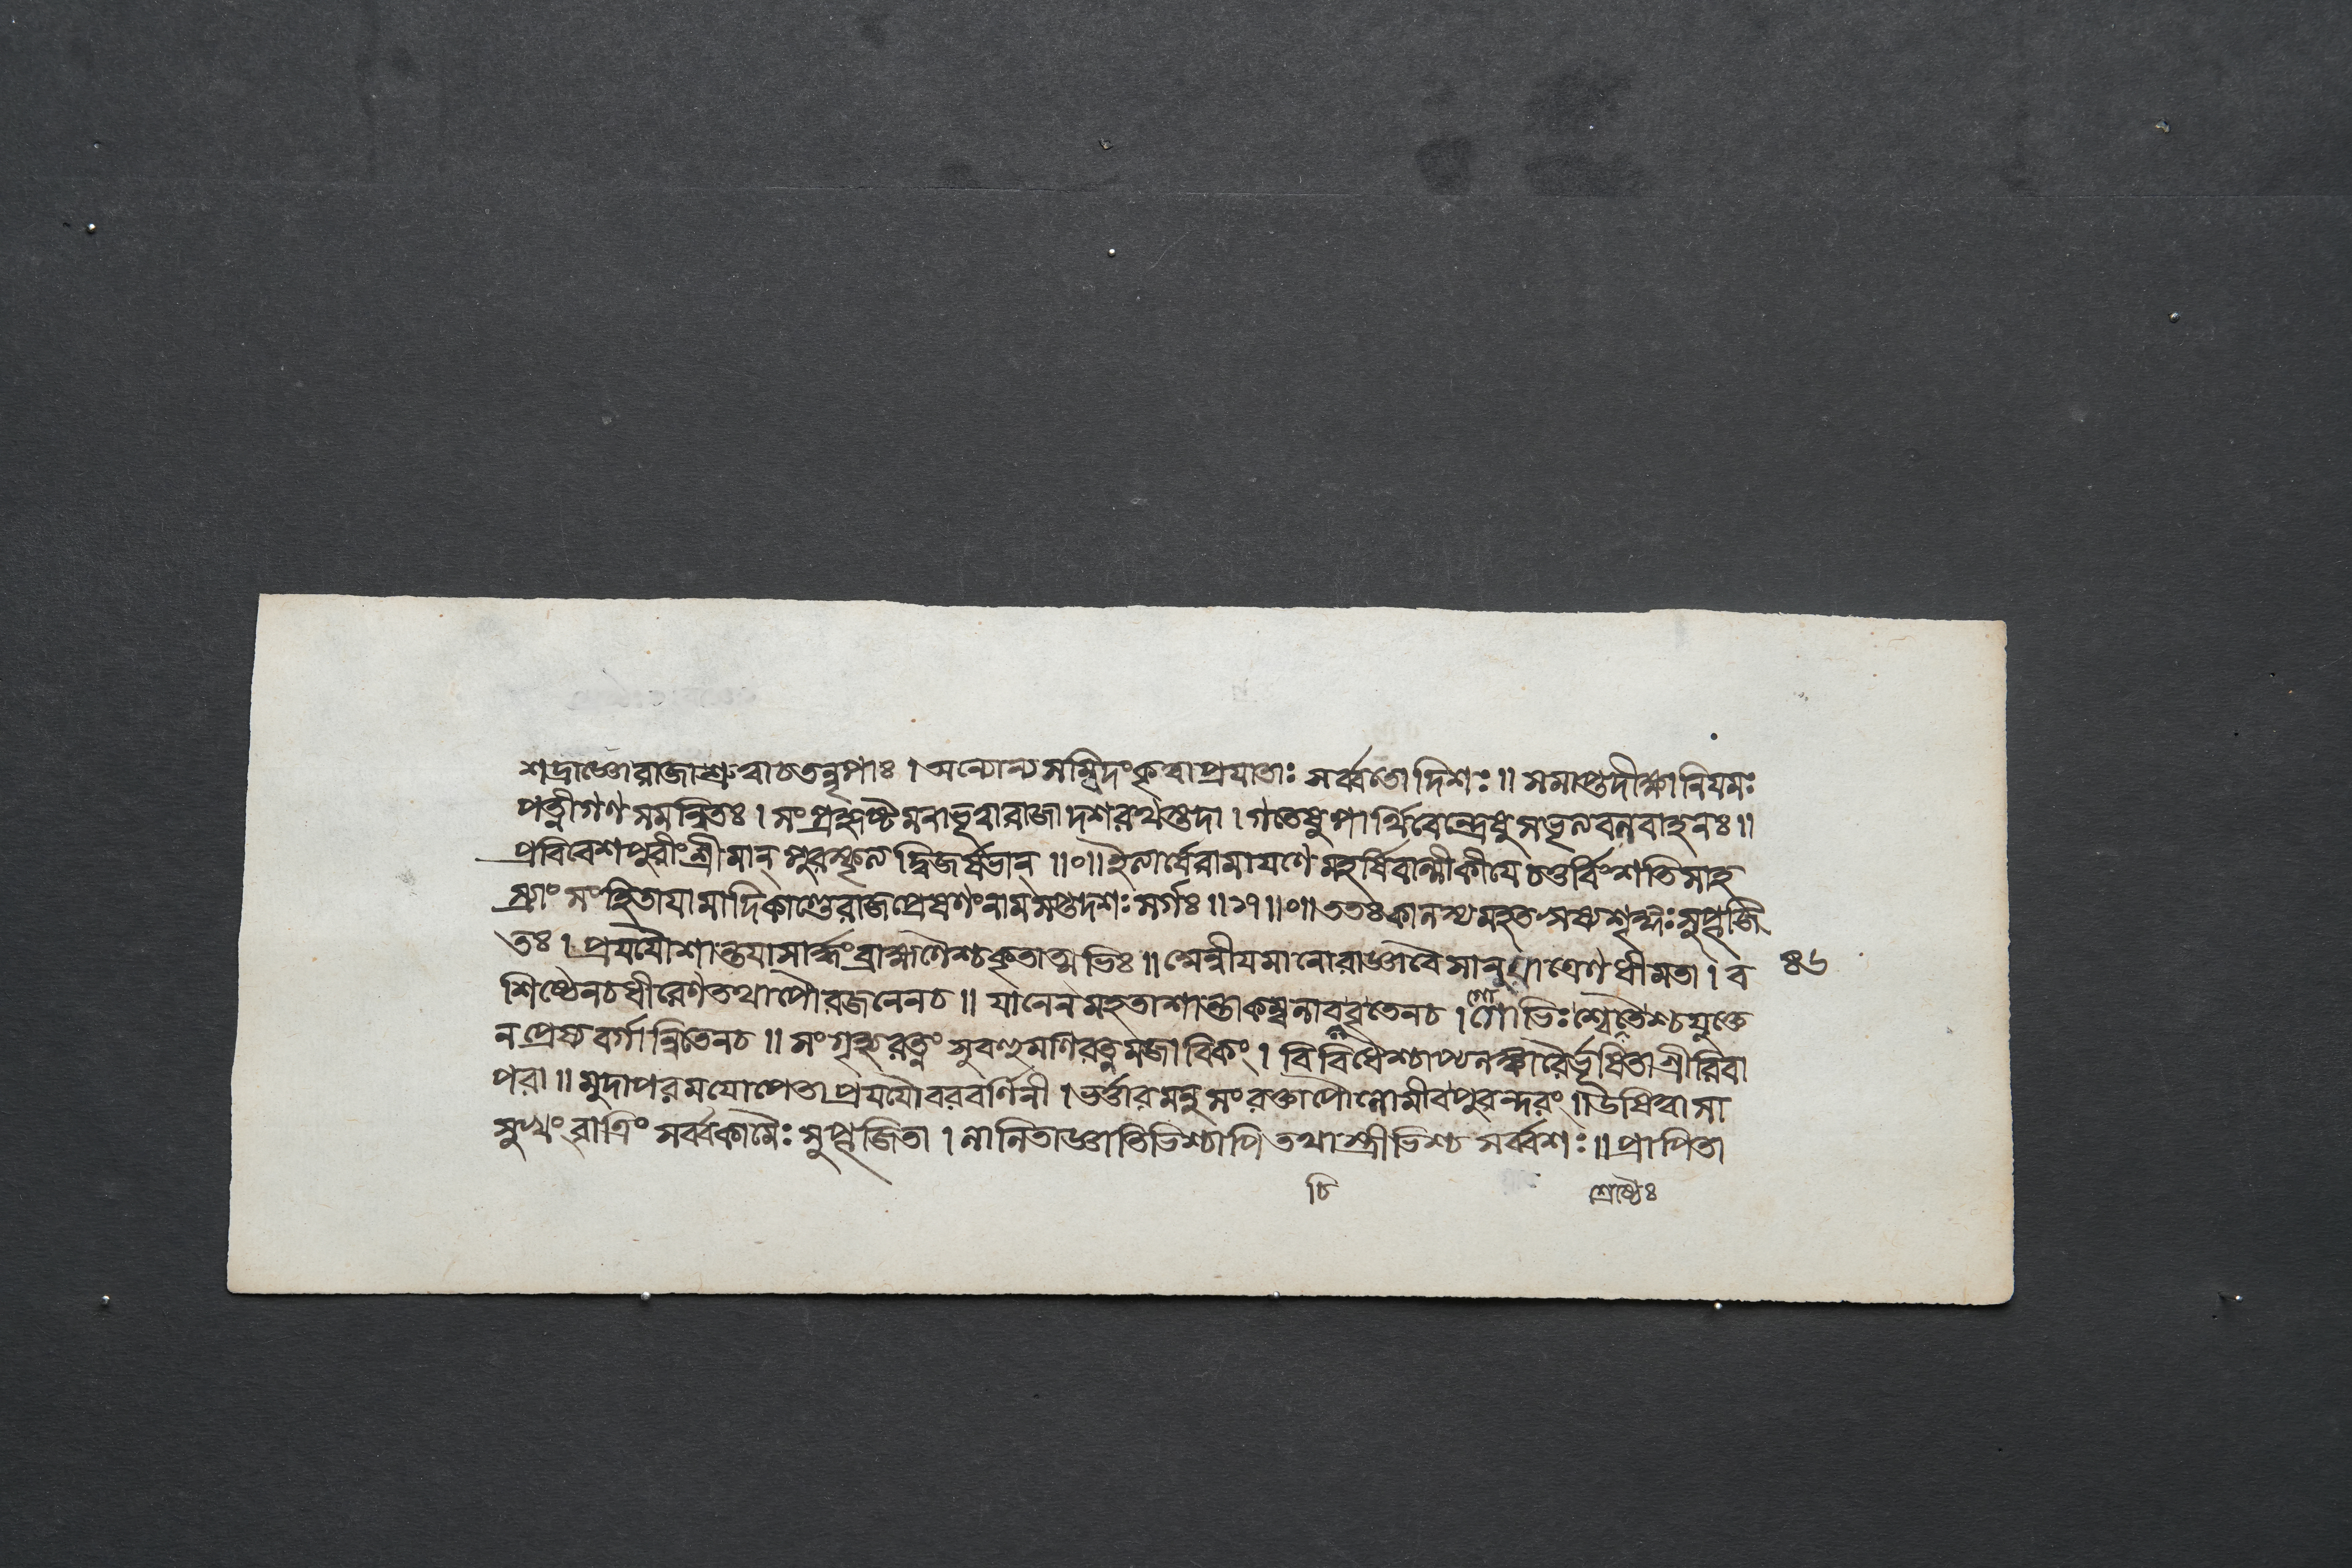 শদ্রাজ্ঞোরাজাশ্রুত্বাচতনৃপাঃ । অন্যোন্যসম্বিদংকৃত্বাপ্রযাতাঃ সর্ব্বতোদিশঃ ॥ সমাপ্তদীক্ষানিযমঃ
পত্নীগণসমন্বিতঃ । সংপ্রহৃষ্টমনাভূত্বারাজাদশরথস্তদা । গতেষুপার্থিবেন্দ্রেষুসভৃত্যবলবাহনঃ ॥
প্রবিবেশপুরীংশ্রীমান্ পুরস্কৃত্যদ্বিজর্ষভান্ ॥০॥ ইত্যার্ষেরামাযণেমহর্ষিবাল্মীকীযে চতুর্বিংশতিসাহ
স্র্যাংসংহিতাযামাদিকাণ্ডেরাজপ্রেষণংনামসপ্তদশঃসর্গঃ ॥১৭॥০॥ ততঃকালস্যমহতঋষ্যশৃঙ্গঃসুপূজি
তঃ । প্রযযৌশান্তযাসার্দ্ধংব্রাহ্মণৈশ্চকৃতাত্মভিঃ ॥ অন্বীযমানোরাজ্ঞাবৈসানুযাত্রেণধীমতা । ব
শিষ্ঠেনচধীরেণতথাপৌরজনেনচ ॥ যানেনমহতাশান্তাকম্বলাববৃতেনচ । গোভিঃশ্বেতৈশ্চযুক্তে
নপ্রেষ্যবর্গান্বিতেনচ ॥ সংগৃহ্যরত্নংসুবহুমণিরত্নমজাবিকং । বিবিধৈশ্চাপ্যলঙ্কারৈর্ভূষিতাশ্রীরিবা
পরা ॥ মুদাপরমযোপেতাপ্রযযৌবরবর্ণিনী । ভর্ত্তারমনুসংরক্তাপৌলোমীবপুরন্দরং ॥ উষিত্বাসা
সুখংরাত্রিং সর্ব্বকামৈঃসুপূজিতা । লালিতাজ্ঞাতিভিশ্চাপিতথাস্ত্রীভিশ্চসর্ব্বশঃ ॥ প্রাপিতা
৪৬
চি
শ্রেষ্ঠৈঃ